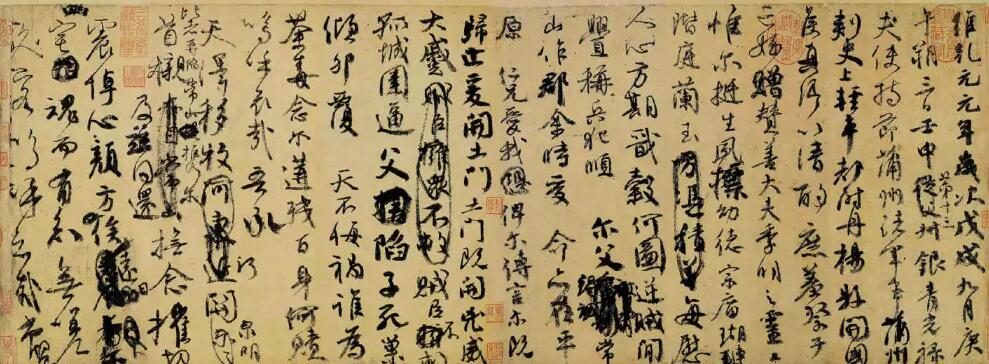 維乾元元年歲次戊戌九月庚
午朔三日壬申第十三叔銀青光祿
夫使持節蒲州諸軍事蒲州
刺史上輕車都尉丹楊縣開國
侯真卿以清酌庶羞祭于
亡姪贈贊善大夫季明之靈曰
惟爾挺生夙標幼德宗廟瑚璉
階庭蘭玉每慰
人心方期戩穀何圖逆賊間
釁稱兵犯順爾父竭誠常
山作郡余時受命亦在平
原仁兄愛我俾爾傳言爾既
歸止爰開土門土門既開凶威
大蹙賊臣不救
孤城圍逼父陷子死巢
傾卵覆天不悔禍誰為
荼毒念爾遘殘百身何贖
嗚呼哀哉吾承
天澤移牧河關泉明
比者再陷常山攜爾
首櫬及茲同還撫念摧切
震悼心顏方俟遠日
宅魂而有知無嗟
久客嗚呼哀哉尚饗